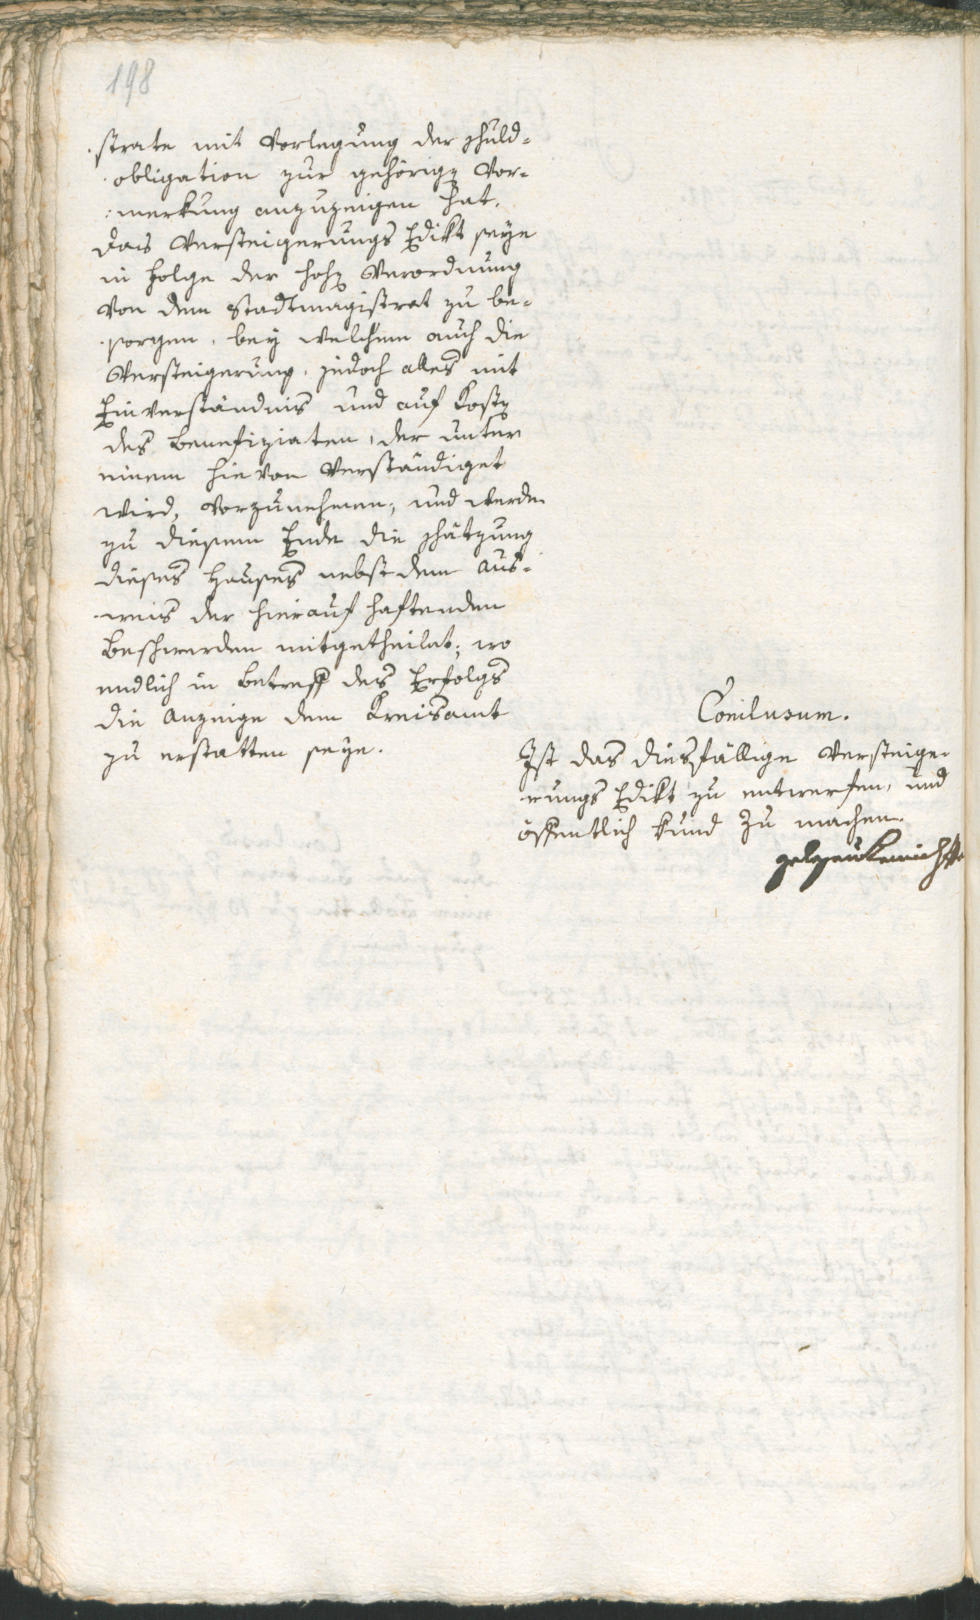 198
strate mit Vorlegung der schuld-
obligation zur gehörigen Vor-
merkung anzuzeigen hat.
Das Versteigerungs Edikt seye
in Folge der hohen Verordnung
von dem Stadtmagistrat zu be-
sorgen, bey welchem auch die
Versteigerung, jedoch alles mit
Einverständnis und auf Kosten
des Benefiziaten, der unter
einem hievon verständiget
wird, vorzunehmen, und werde
zu diesem Ende die schätzung
dieses Hauses nebst dem Aus-
weis der hierauf haftenden
Beschwerden mitgetheilet; wo
endlich in Betreff des Erfolgs
die Anzeige dem Kreisamt
zu erstatten seye.
Conclusum.
Ist das diesfällige Versteige-
rungs Edikt zu entwerfen, und
öffentlich kund zu machen.